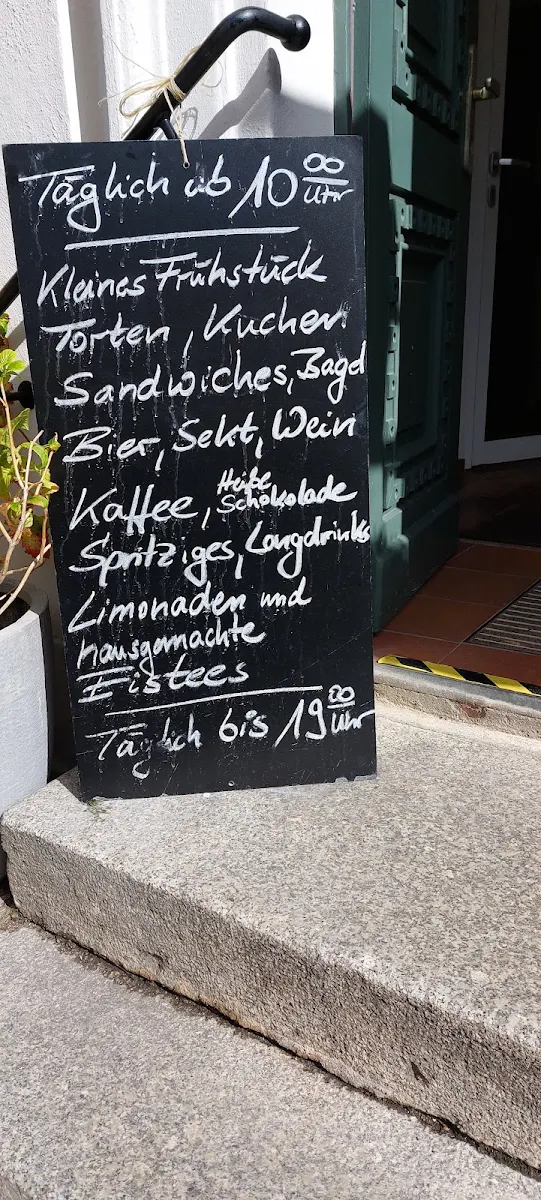 Täglich ab 10 00 Uhr
Kleines Frühstück
Torten, Kuchen
Sandwiches, Bagel
Bier, Sekt, Wein
Kaffee, Heiße Schokolade
Spritziges, Longdrinks
Limonaden und
hausgemachte
Eistees
Täglich bis 19 00 Uhr